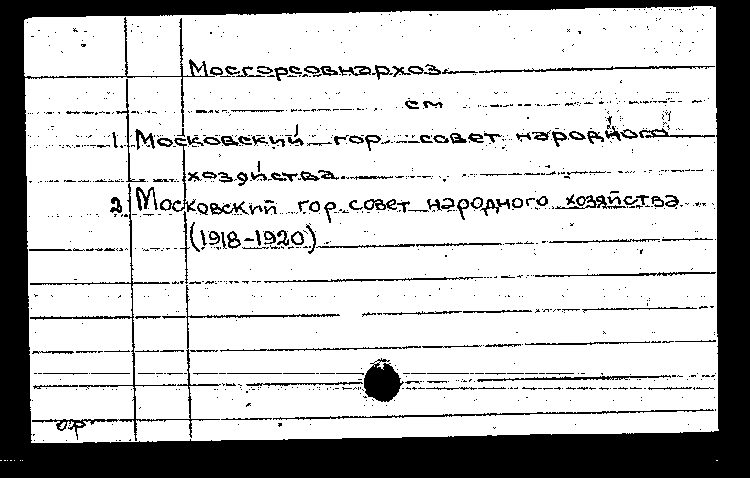 Мосгорсовнархоз
см
1. Московский гор. совет народного
хозяйства
2. Московский гор. совет народного хозяйства
(1918-1920)